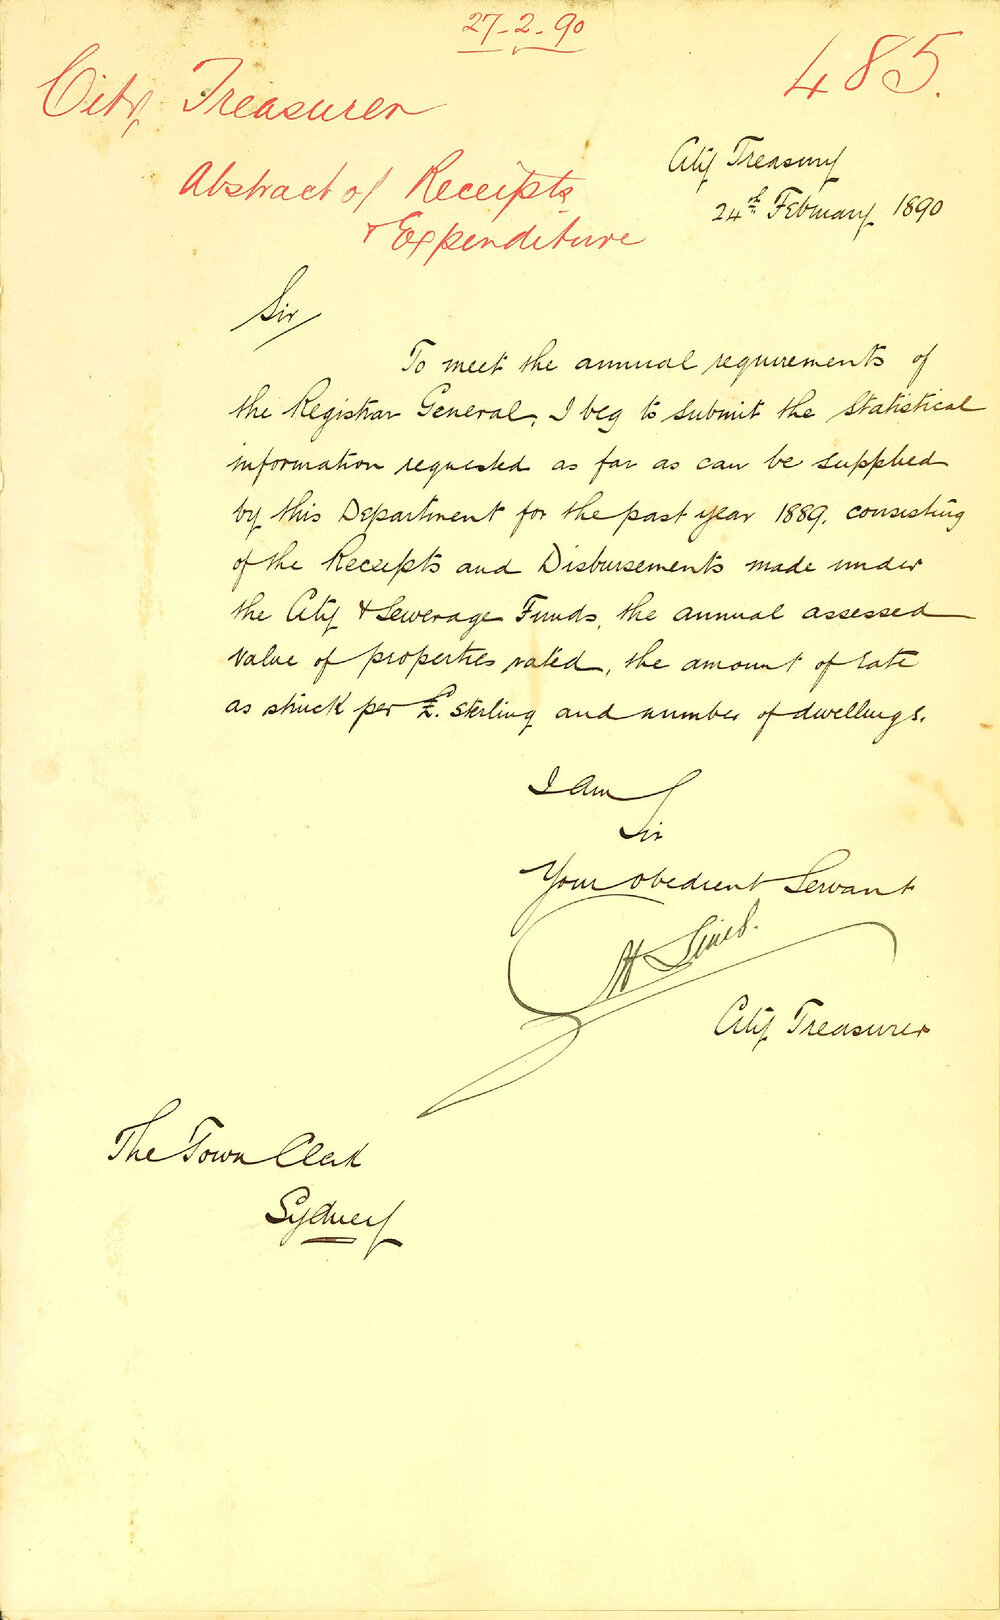 27-2-90
485.
City Treasurer
Abstract of Receipts
& Expenditure
City Treasury
24th February 1890
Sir
To meet the annual requirements of
the Registrar General, I beg to submit the statistical
information requested as far as can be supplied
by this Department for the past year 1889. consisting
of the Receipts and Disbursements made under
the City & Sewerage Funds, the annual assessed
value of properties rated, the amount of rate
as struck per £. sterling and number of dwellings.
I am
Sir
Your obedient Servant
City Treasurer
The Town Clerk
Sydney